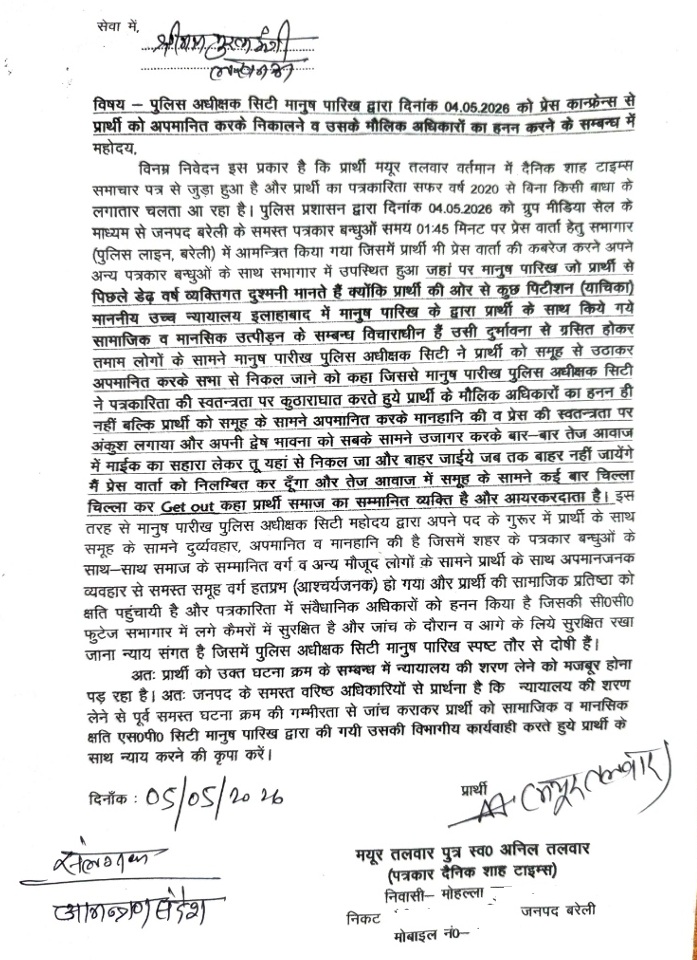 सेवा में,
श्रीमान मुख्यमंत्री
लखनऊ
विषय – पुलिस अधीक्षक सिटी मानुष पारिख द्वारा दिनांक 04.05.2026 को प्रेस कान्फ्रेन्स से
प्रार्थी को अपमानित करके निकालने व उसके मौलिक अधिकारों का हनन करने के सम्बन्ध में
महोदय,
विनम्र निवेदन इस प्रकार है कि प्रार्थी मयूर तलवार वर्तमान में दैनिक शाह टाइम्स
समाचार पत्र से जुड़ा हुआ है और प्रार्थी का पत्रकारिता सफर वर्ष 2020 से बिना किसी बाधा के
लगातार चलता आ रहा है। पुलिस प्रशासन द्वारा दिनांक 04.05.2026 को ग्रुप मीडिया सेल के
माध्यम से जनपद बरेली के समस्त पत्रकार बन्धुओं समय 01:45 मिनट पर प्रेस वार्ता हेतु सभागार
(पुलिस लाइन, बरेली) में आमन्त्रित किया गया जिसमें प्रार्थी भी प्रेस वार्ता की कबरेज करने अपने
अन्य पत्रकार बन्धुओं के साथ सभागार में उपस्थित हुआ जहां पर मानुष पारिख जो प्रार्थी से
पिछले डेढ़ वर्ष व्यक्तिगत दुश्मनी मानते हैं क्योंकि प्रार्थी की ओर से कुछ पिटीशन (याचिका)
माननीय उच्च न्यायालय इलाहाबाद में मानुष पारिख के द्वारा प्रार्थी के साथ किये गये
सामाजिक व मानसिक उत्पीड़न के सम्बन्ध विचाराधीन हैं उसी दुर्भावना से ग्रसित होकर
तमाम लोगों के सामने मानुष पारीख पुलिस अधीक्षक सिटी ने प्रार्थी को समूह से उठाकर
अपमानित करके सभा से निकल जाने को कहा जिससे मानुष पारीख पुलिस अधीक्षक सिटी
ने पत्रकारिता की स्वतन्त्रता पर कुठाराघात करते हुये प्रार्थी के मौलिक अधिकारों का हनन ही
नहीं बल्कि प्रार्थी को समूह के सामने अपमानित करके मानहानि की व प्रेस की स्वतन्त्रता पर
अंकुश लगाया और अपनी द्वेष भावना को सबके सामने उजागर करके बार–बार तेज आवाज
में माईक का सहारा लेकर तू यहां से निकल जा और बाहर जाईये जब तक बाहर नहीं जायेंगे
मैं प्रेस वार्ता को निलम्बित कर दूँगा और तेज आवाज में समूह के सामने कई बार चिल्ला
चिल्ला कर Get out कहा प्रार्थी समाज का सम्मानित व्यक्ति है और आयरकरदाता है। इस
तरह से मानुष पारीख पुलिस अधीक्षक सिटी महोदय द्वारा अपने पद के गुरूर में प्रार्थी के साथ
समूह के सामने दुर्व्यवहार, अपमानित व मानहानि की है जिसमें शहर के पत्रकार बन्धुओं के
साथ–साथ समाज के सम्मानित वर्ग व अन्य मौजूद लोगों के सामने प्रार्थी के साथ अपमानजनक
व्यवहार से समस्त समूह वर्ग हतप्रभ (आश्चर्यजनक) हो गया और प्रार्थी की सामाजिक प्रतिष्ठा को
क्षति पहुंचायी है और पत्रकारिता में संवैधानिक अधिकारों को हनन किया है जिसकी सी0सी0
फुटेज सभागार में लगे कैमरों में सुरक्षित है और जांच के दौरान व आगे के लिये सुरक्षित रखा
जाना न्याय संगत है जिसमें पुलिस अधीक्षक सिटी मानुष पारिख स्पष्ट तौर से दोषी हैं।
अतः प्रार्थी को उक्त घटना क्रम के सम्बन्ध में न्यायालय की शरण लेने को मजबूर होना
पड़ रहा है। अतः जनपद के समस्त वरिष्ठ अधिकारियों से प्रार्थना है कि न्यायालय की शरण
लेने से पूर्व समस्त घटना क्रम की गम्भीरता से जांच कराकर प्रार्थी को सामाजिक व मानसिक
क्षति एस0पी0 सिटी मानुष पारिख द्वारा की गयी उसकी विभागीय कार्यवाही करते हुये प्रार्थी के
साथ न्याय करने की कृपा करें।
दिनाँक : 05/05/2026
प्रार्थी
(मयूर तलवार)
मयूर तलवार पुत्र स्व0 अनिल तलवार
(पत्रकार दैनिक शाह टाइम्स)
निवासी– मोहल्ला
निकट जनपद बरेली
मोबाइल नं0–
संलग्नक
आमन्त्रण संदेश